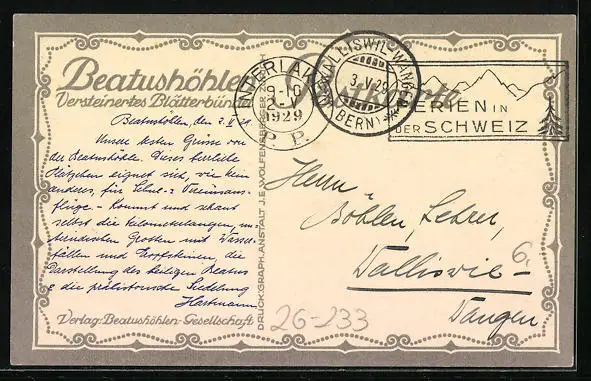 Beatushöhlen Postkarte
Versteinertes Blätterbündel
INTERLAKEN
9-10
2-V
1929
P. P.
WALLISWIL-WANGEN
3.V.29
(BERN)
FERIEN IN
DER SCHWEIZ
Beatushöhlen, den 2. V. 29.
Unsere besten Grüsse von
der Beatushöhle. Dieses herrliche
Plätzchen eignet sich, wie kein
anderes, für Schul- & Vereinsaus-
flüge. - Kommt und schaut
selbst die kilometerlangen, un-
terirdischen Grotten mit Wasser-
fällen und Tropfsteinen, die
Darstellung des heiligen Beatus
& die prähistorische Siedelung
Hartmann
Verlag: Beatushöhlen-Gesellschaft
DRUCK: GRAPH. ANSTALT J. E. WOLFENSBERGER ZÜRICH
Herrn
Böhlen, Lehrer,
Walliswil-
Wangen
6
26-233